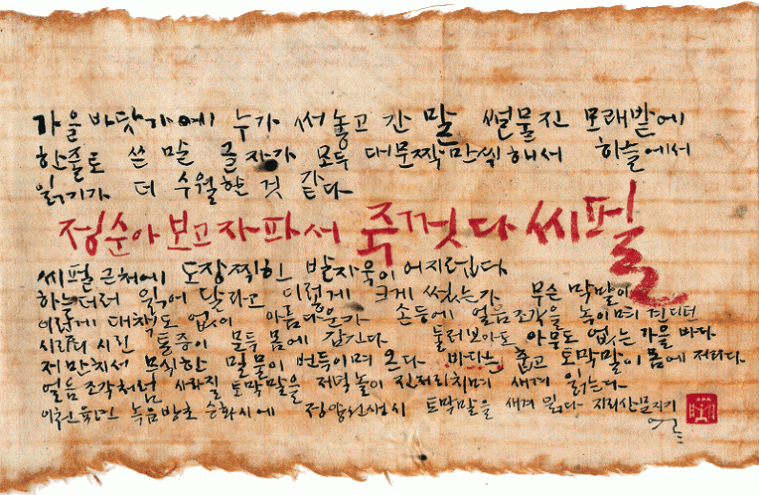 가을 바닷가에 누가 써놓고 간 말 썰물진 모래밭에
한줄로 쓴 말 글자가 모두 대문짝만씩해서 하늘에서
읽기가 더 수월한 것 같다
정순아보고자파서 죽껏다씨펄
씨펄 근처에 도장찍힌 발자욱이 어지럽다
하늘더러 읽어 달라고 이렇게 크게 썼는가 무슨 막말이
이렇게 대책도 없이 아름다운가 손등에 얼음조각을 녹이며 견디던
시리디 시린 통증이 모두 몸에 감긴다 둘러보아도 아무도 없는 가을 바다
저만치서 무식한 밀물이 번득이며 온다 바다는 춥고 토막말이 몸에 저리다
얼음조각처럼 사라질 토막말을 저녁놀이 진저리치며 새겨 읽는다
녹음방초 정양선생시 토막말을 새겨 읽다 지리산문지기